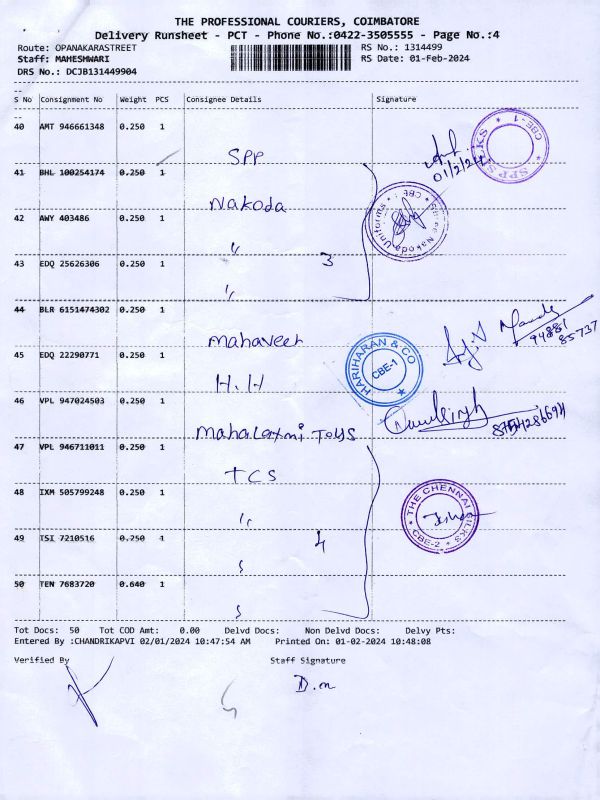 THE PROFESSIONAL COURIERS, COIMBATORE
Delivery Runsheet - PCT - Phone No.:0422-3505555 - Page No.:4
Route: OPANAKARASTREET RS No.: 1314499
Staff: MAHESHWARI RS Date: 01-Feb-2024
DRS No.: DCJB131449904
S No Consignment No Weight PCS Consignee Details Signature
40 AMT 946661348 0.250 1
SPP
01/2/24
SPP SILKS * CBE-1 *
41 BHL 100254174 0.250 1
Nakoda
Nakoda Uniforms * CBE
42 AWY 403486 0.250 1
"
3
43 EDQ 25626306 0.250 1
"
44 BLR 6151474302 0.250 1
Mahaveer
94881
85737
45 EDQ 22290771 0.250 1
H.H
HARIHARAN & CO
CBE-1
46 VPL 947024503 0.250 1
Mahalaxmi Toys
47 VPL 946711011 0.250 1
TCS
48 IXM 505799248 0.250 1
"
* THE CHENNAI SILKS * CBE-2
49 TSI 7210516 0.250 1
4
50 TEN 7683720 0.640 1
Tot Docs: 50 Tot COD Amt: 0.00 Delvd Docs: Non Delvd Docs: Delvy Pts:
Entered By :CHANDRIKAPVI 02/01/2024 10:47:54 AM Printed On: 01-02-2024 10:48:08
Verified By Staff Signature
D.m